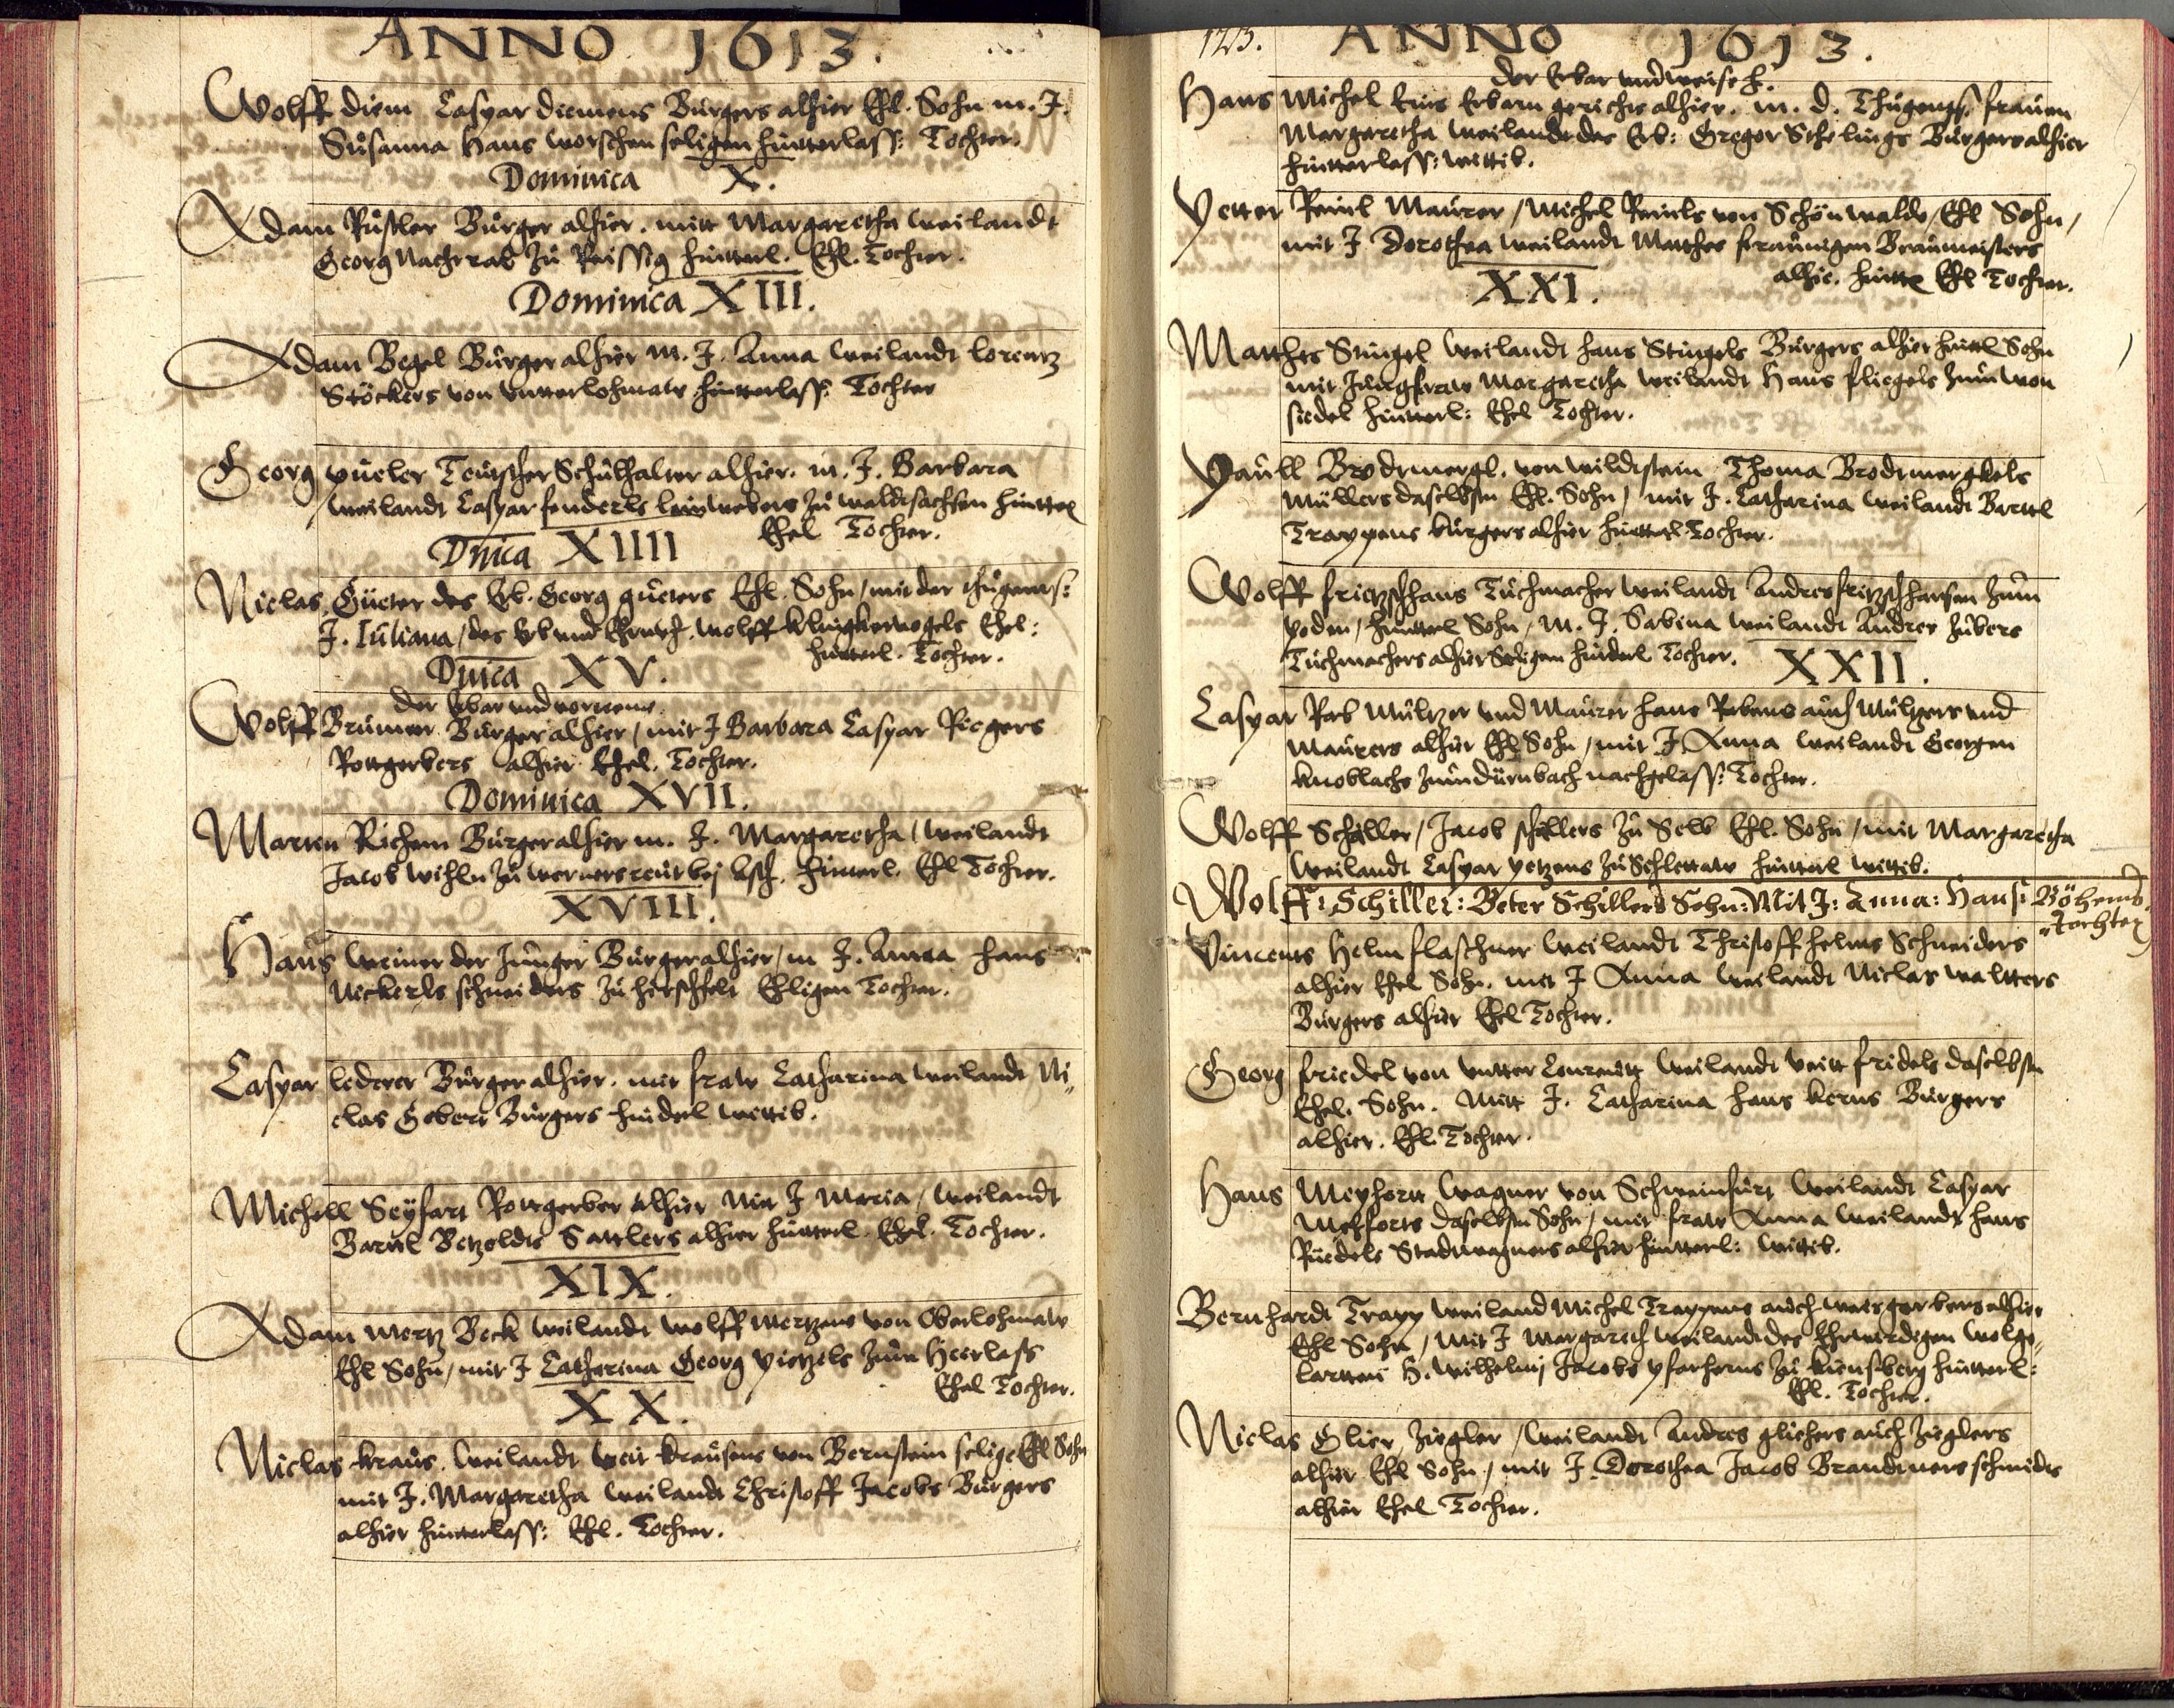 ANNO 1613.
Wolff Diem Caspar Diemens Bürgers alhier Ehl. Sohn m. J.
Susanna Hans worschen seligen hintterlass: Tochter.
Dominica X.
Adam Rüstler Bürger alhier. mitt Margaretha weilandt
Georg Nachtrab zu Reissig hintterl. Ehl. Tochter.
Dominica XIII.
Adam Begel Bürger alhier m. J. Anna weilandt Lorentz
Stöckers von Untterlohmaw hintterlass: Tochter
Georg püeler Teutscher Schulhalter alhier. m. J. Barbara
weilandt Caspar fenderls leinwebers zu waldtsachsen hintterl
Ehel Tochter.
Dnica XIIII
Niclas Güeter des Erb. Georg güeters Ehl. Sohn / mit der thugents:
J. Juliana / des Erb und Ehrnv. Wolff Klingkervogels Ehel:
hintterl. Tochter.
Dnica XV.
der Erbar und vorneme
Wolff Brümer Bürger alhier / mit J Barbara Caspar Riegers
Rottgerbers alhier Ehel. Tochter.
Dominica XVII.
Marten Richem Bürger alhier m. J. Margaretha / weilandt
Jacob wihln zu wernersreut bej Asch. hintterl. Ehl Tochter.
XVIII.
Hans Weiner der Junger Bürger alhier / m J. Anna Hans
Nickerls schneiders zu hirschfelt Ehligen Tochter.
Caspar lederer Bürger alhier. mit fraw Catharina weilandt Ni,,
clas Gebert Bürgers hinderl wettib.
Michell Seyfart Rottgerber alhier Mit J Maria / weilandt
Bartl Betzoldts Sattlers alhier hintterl. Ehel. Tochter.
XIX.
Adam mertz Beck weilandt wolff mertzens von Oberlohmaw
Ehl Sohn / mit J Catharina Georg pietzels zum Heerlass
Ehel Tochter.
XX.
Niclas Kraus. weilandt Veit Krausens von Bernstein selige Ehl Sohn
mit J. Margaretha weilandt Christoff Jacobs Bürgers
alhier hintterlass: Ehl. Tochter.
123. ANNO 1613.
der Erbar und weise h.
Hans Michel eins Erbarn gerichts alhier. m. d. Thugents. frauen
Margaretha weilandt des Erb: Gregor Schelings Bürgers alhier
hintterlass: wittib.
Petter Reinl Maurer / Michel Reinls von Schönwaldt / Ehl Sohn /
mit J Dorothea weilandt Matthes Breumeisters
alhie. hintterl Ehl Tochter.
XXI.
Matthes Stingel weilandt hans Stingels Bürgers alhier hintl Sohn
mit Jungfraw Margaretha weilandt Hans fliegels zum won
siedel hintterl: Ehel Tochter.
Paull Brodtmergl. von wildtstein Thoma Brodtmergkels
Müllers daselbsten Ehl. Sohn / mit J. Catharina weilandt Barttl
Trappens bürgers alhier hintterl Tochter.
Wolff fritzschhans Tuchmacher weilandt Andres fritzschhansen zum
poden / hintterl Sohn / m. J. Sabina weilandt Andres hubers
Tuchmachers alhier Seligen hinderl Tochter.
XXII.
Caspar Rab Mültzer und Maurer hans Rabens auch Mültzers und
Maurers alhier Ehl Sohn / mit J. Anna weilandt Georgen
Knoblachs zum dürnbach nachgelass: Tochter.
Wolff Schiller / Jacob schillers zu Selb Ehl. Sohn / mit Margaretha
weilandt Caspar petzens zu Schlettaw hintterl wittib.
Wolff: Schiller: Beter Schillers Sohn: Mit J: Anna: Hans: Böhems
Tochter
Vincents Helm flaschner weilandt Christoff helms Schneiders
alhier Ehel Sohn. mit J Anna weilandt Niclas waltters
Bürgers alhier Ehel Tochter.
Georg friedel von Untter weilandt Veitt fridels daselbsten
Ehel. Sohn. Mitt J. Catharina hans Kerns Bürgers
alhier. Ehl. Tochter.
Hans Meyhort Wagner von Schweinfurt weilandt Caspar
Mehforts daselbsten Sohn / mit fraw Anna weilandt hans
Rüedels Stadtwagners alhier hintterl: wittib.
Bernhardt Trapp weiland Michel Trappens auch weisgerbers alhier
Ehl Sohn / mit J Margareth weilandt des Ehrwirdigen Wolge,,
larten h. Wilhelmi Jacobs pfarherns zu Kunsberg hintterl:
Ehl. Tochter.
Niclas Glier Ziegler / weilandt Andres gliehers auch Zieglers
alhier Ehl Sohn / mit J. Dorothea Jacob Brandtners schmidts
alhier Ehel Tochter.